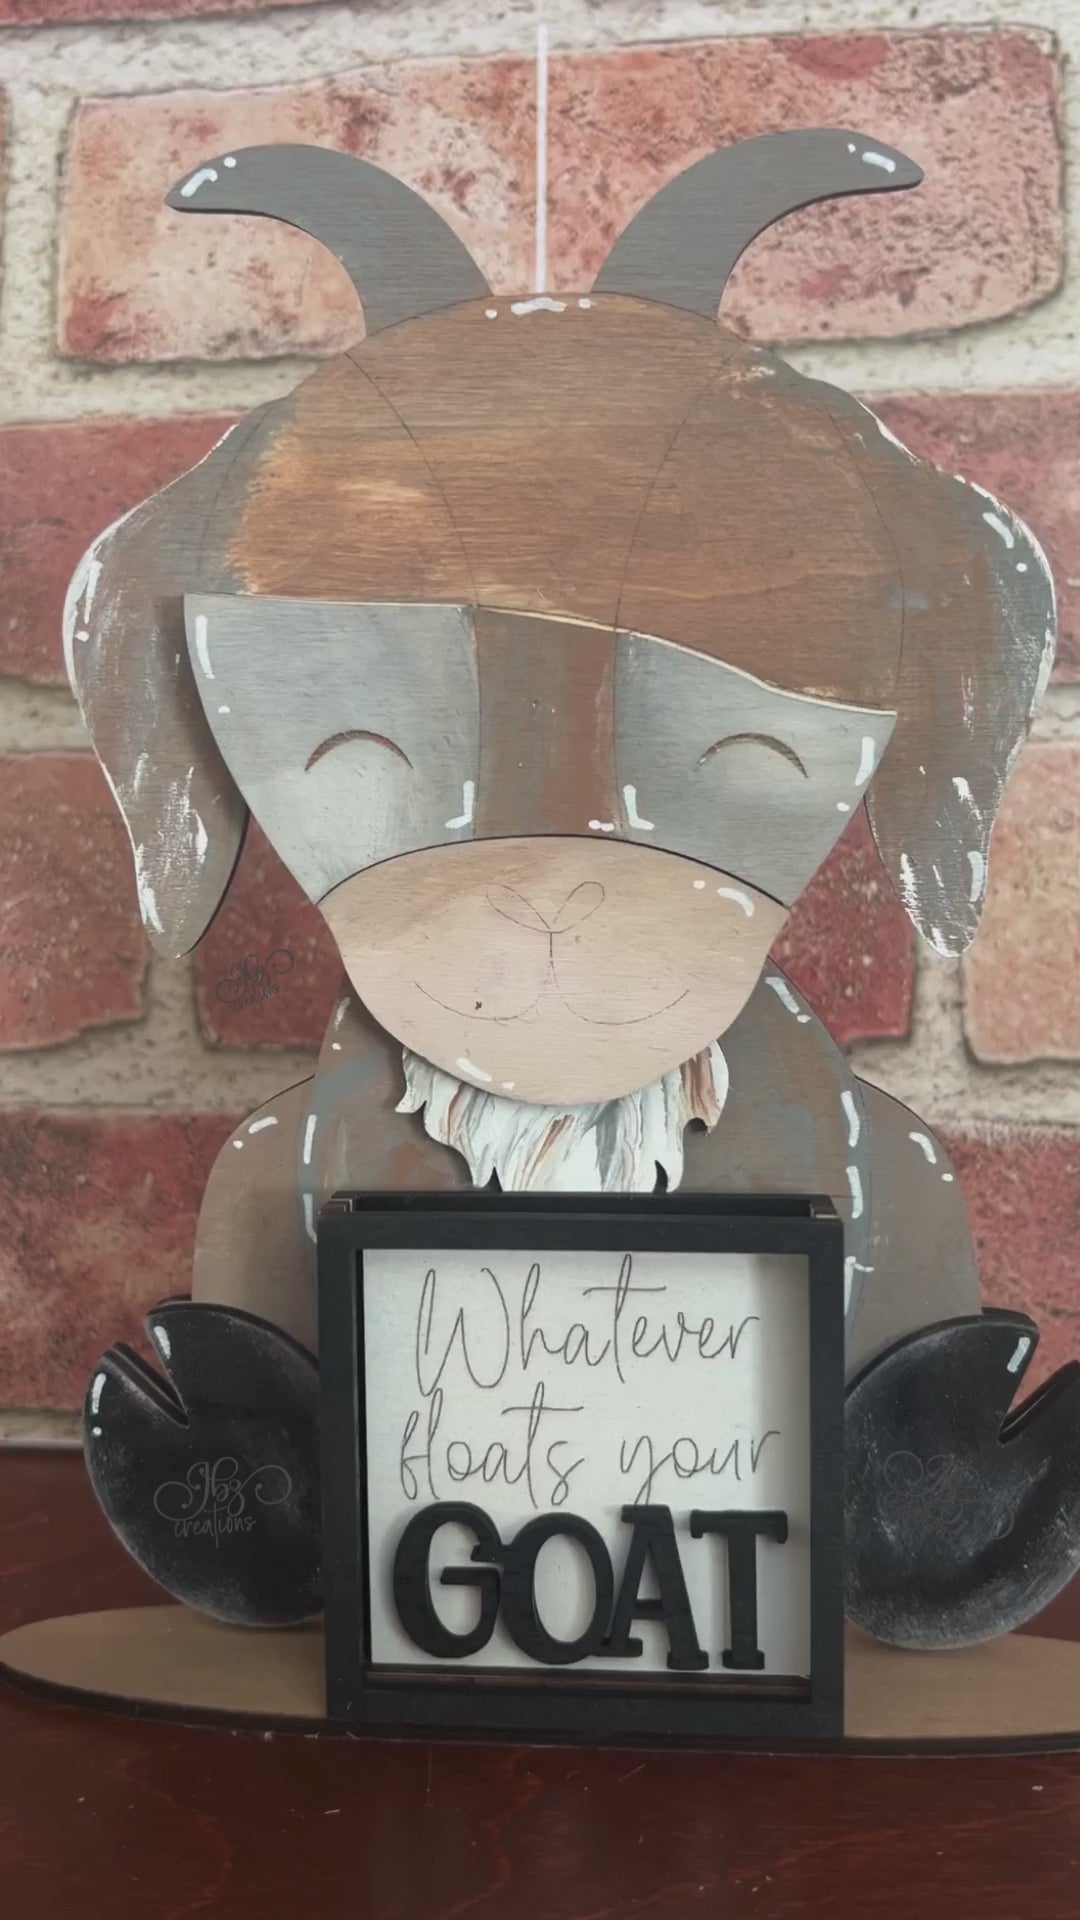 Jbz
creations
Whatever
floats your
GOAT
Jbz
creations